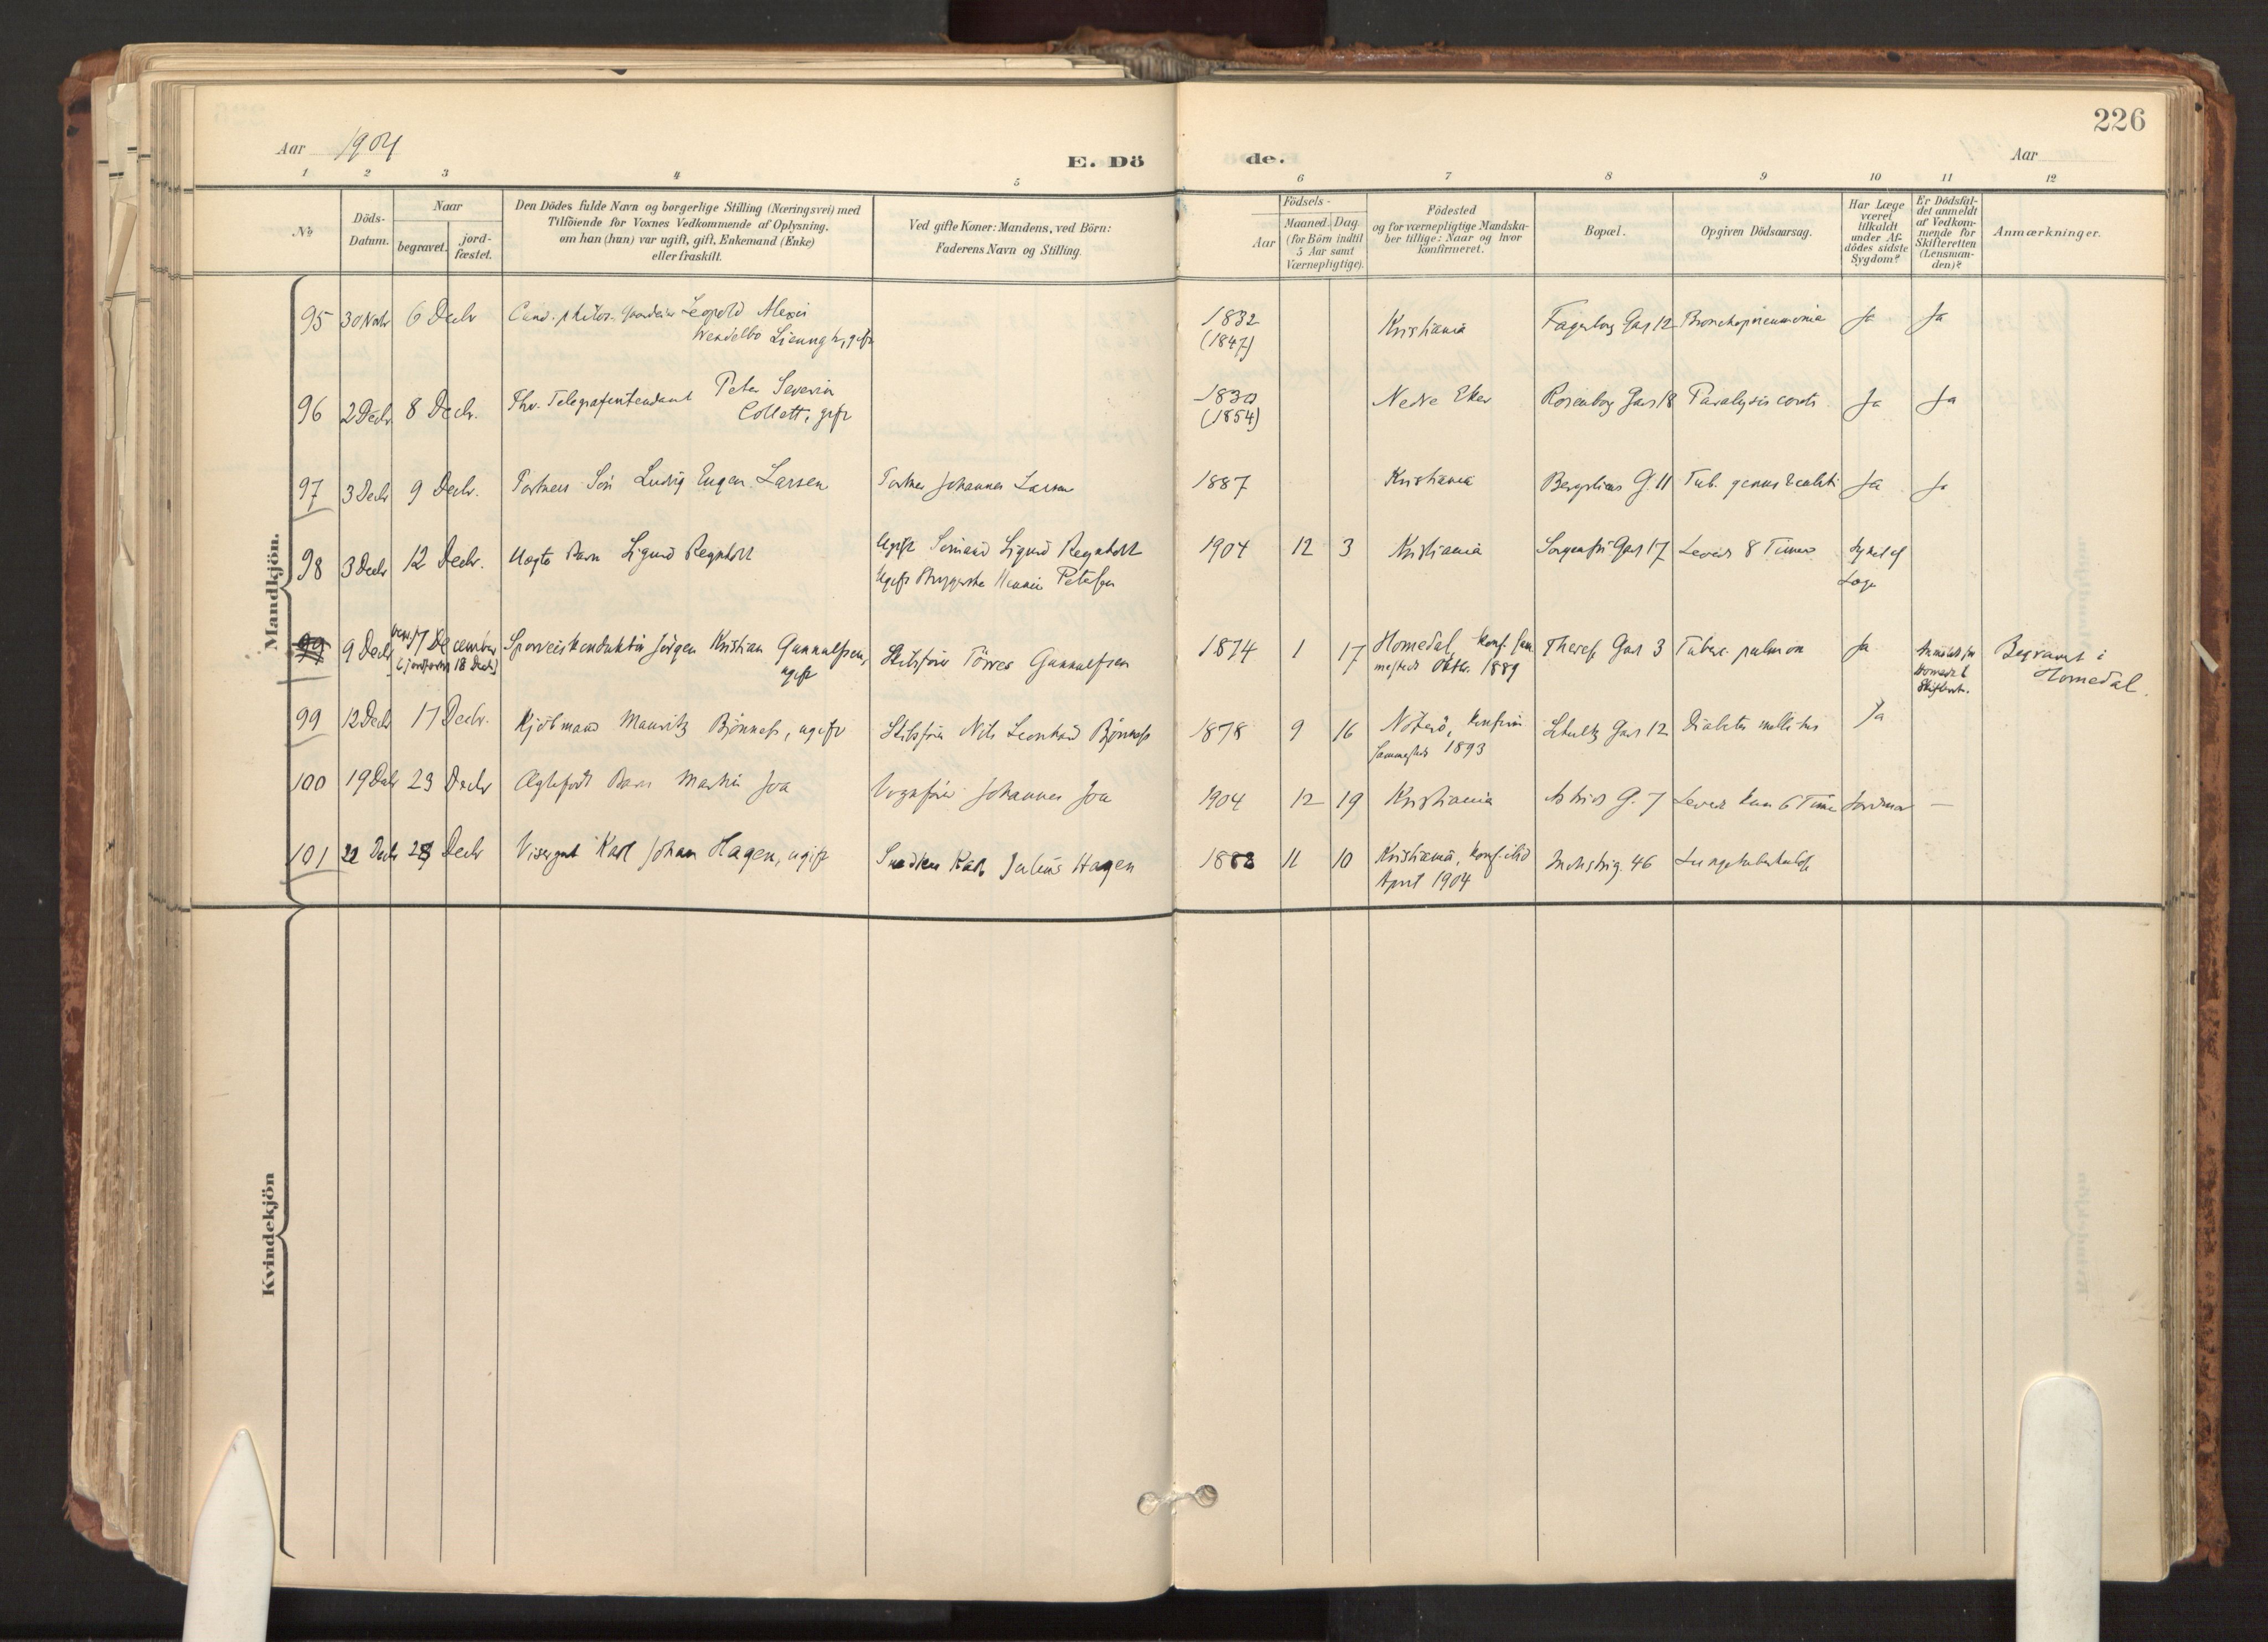 226
Aar 1904
E. Dö de.
Aar
1 2 3 4 5 6 7 8 9 10 11 12
No
Döds-
Datum.
Naar
begravet. jord-
fæstet.
Den Dödes fulde Navn og borgerlige Stilling (Næringsvei) med
Tilföiende for Voxnes Vedkommende af Oplysning,
om han (hun) var ugift, gift, Enkemand (Enke)
eller fraskilt.
Ved gifte Koner: Mandens, ved Börn:
Faderens Navn og Stilling.
Födsels-
Aar
Maaned. Dag.
(for Börn indtil
5 Aar samt
Værnepligtige).
Födested
og for værnepligtige Mandska-
ber tillige: Naar og hvor
konfirmeret.
Bopæl.
Opgiven Dödsaarsag.
Har Læge
været
tilkaldt
under Af-
dödes sidste
Sygdom?
Er Dödsfal-
det anmeldt
af Vedkom-
mende for
Skifteretten
(Lensman-
den)?
Anmærkninger.
Mandkjön.
95 30 Novbr 6 Decbr Cand. philos. Leopold Alexis 1832 Kristiania Fagerborg Gad 12 Bronchopneumonia Ja Ja
Wendelbo gift (1847)
96 2 Decbr 8 Decbr. Fhv. Telegrafintendant Peter Severin 1830 Nedre Eker Rosenborg Gad 18 Paralysis cordis Ja Ja
Collett, gift (1854)
97 3 Decbr 9 Decbr. Portners Sön Ludvig Eugen Larsen Portner Johannes Larsen 1887 Kristiania G. 11 Tub. genus Ja Ja
98 3 Decbr 12 Decbr. Uægte Barn Sigurd Ugift Sömand Sigurd 1904 12 3 Kristiania Sorgenfri Gad 17 Levede 8 Timer
Ugift Petersen
99 9 Decbr 17 December Sporveiskonduktör Jörgen Kristian Gunnulfsen, Skibsförer Törres Gunnulfsen 1874 1 17 Homedal, konf. sam- Theres Gad 3 Tuberc. pulmon Ja Begravet i
18 Decbr) ugift mesteds Oktbr. 1889 Homedal.
99 12 Decbr 17 Decbr. Kjöbmand Mauritz Bjönness, ugift Skibsförer Nils Leonhard Bjönness 1878 9 16 Nöterö, konfirm Schultz Gad 12 Diabetes mellitus Ja
sammesteds 1893
100 19 Decbr 23 Decbr Ægtefödt Barn Martin Joa Vognförer Johannes Joa 1904 12 19 Kristiania Astrids G. 7 Levede kun 6 Timer Jordmor —
101 22 Decbr 28 Decbr Visergut Karl Johan Hagen, ugift Snedker Karl Julius Hagen 1888 11 10 Kristiania, konf. 46 Lungetuberkulose
April 1904
Kvindekjön